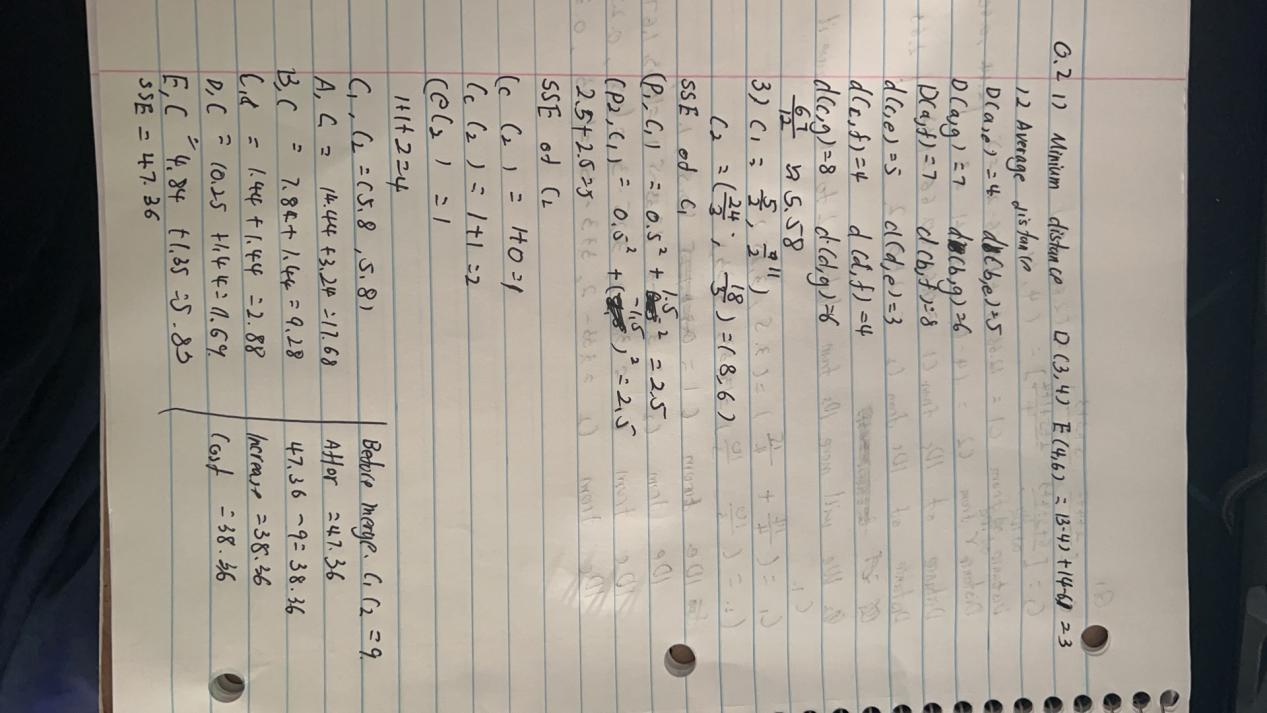 Q.2 1) Minium distance D(3,4) E(4,6) = |3-4|+|4-6| = 3
12 Average distance
D(a,e) = 4 d(b,e) = 5
D(a,g) = 7 d(b,g) = 6
D(a,f) = 7 d(b,f) = 8
d(c,e) = 5 d(d,e) = 3
d(c,f) = 4 d(d,f) = 4
d(c,g) = 8 d(d,g) = 6
67/12 ≈ 5.58
3) C1 = 5/2, 11/2)
C2 = (24/3, 18/3) = (8,6)
SSE of C1
(P1 - C1) = 0.5² + 1.5² = 2.5
(P2, C1) = 0.5² + (-1.5)² = 2.5
2.5+2.5=5
SSE of C2
(C C2) = 1+0=1
(C C2) = 1+1=2
(C C2) = 1
1+1+2=4
C1, C2 = (5.8, 5.8)
A, C = 14.44 + 3.24 = 17.68
B, C = 7.84 + 1.44 = 9.28
C, d = 1.44 + 1.44 = 2.88
D, C = 10.25 + 1.44 = 11.69
E, C = 4.84 + 1.35 = 5.85
SSE = 47.36
Before merge. C1 C2 = 9
After = 47.36
47.36 - 9 = 38.36
Increase = 38.36
Cost = 38.36